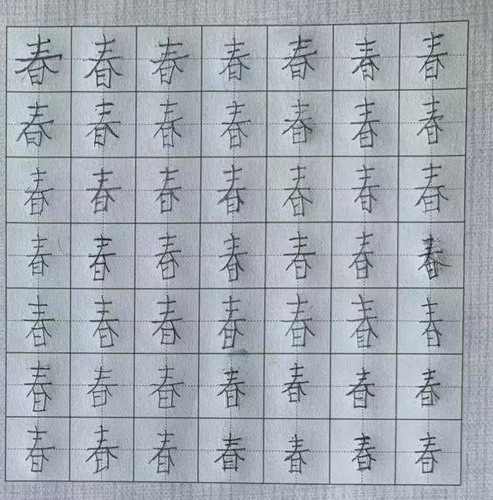 春春春春春春春
春春春春春春春
春春春春春春春
春春春春春春春
春春春春春春春
春春春春春春春
春春春春春春春